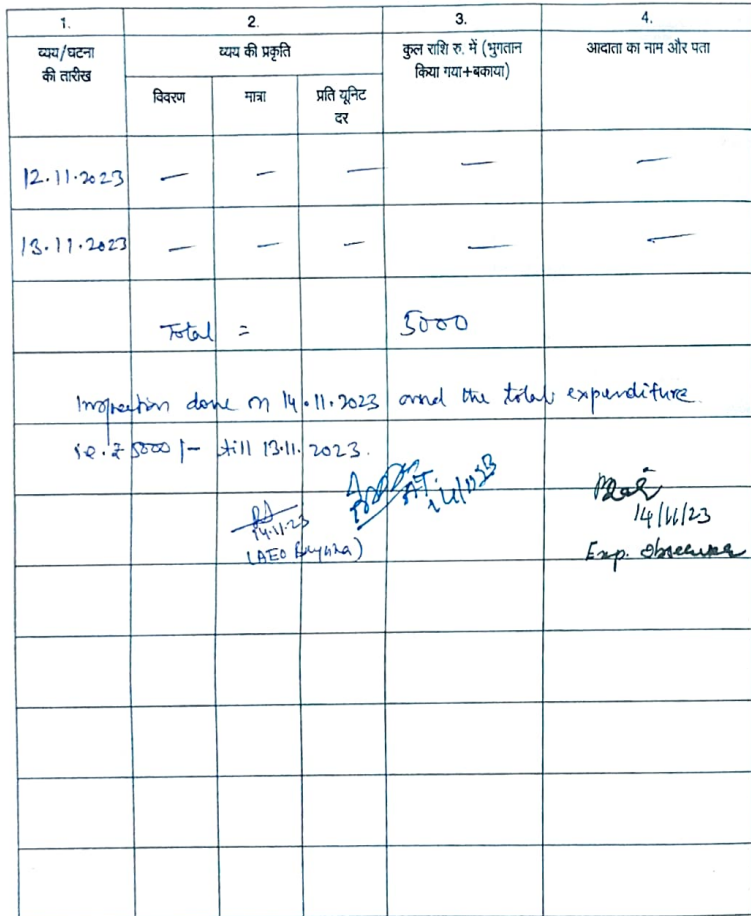 1. 2. 3. 4.
व्यय/घटना की तारीख
व्यय की प्रकृति
कुल राशि रु. में (भुगतान किया गया+बकाया)
आदाता का नाम और पता
विवरण मात्रा प्रति यूनिट दर
12.11.2023 — — — — —
13.11.2023 — — — — —
Total = 5000
Inspection done on 14.11.2023 and the total expenditure
i.e. ₹ 5000/- till 13.11.2023.
AT. 14/11/23
14.11.23
(AEO
14/11/23
Exp. Observer